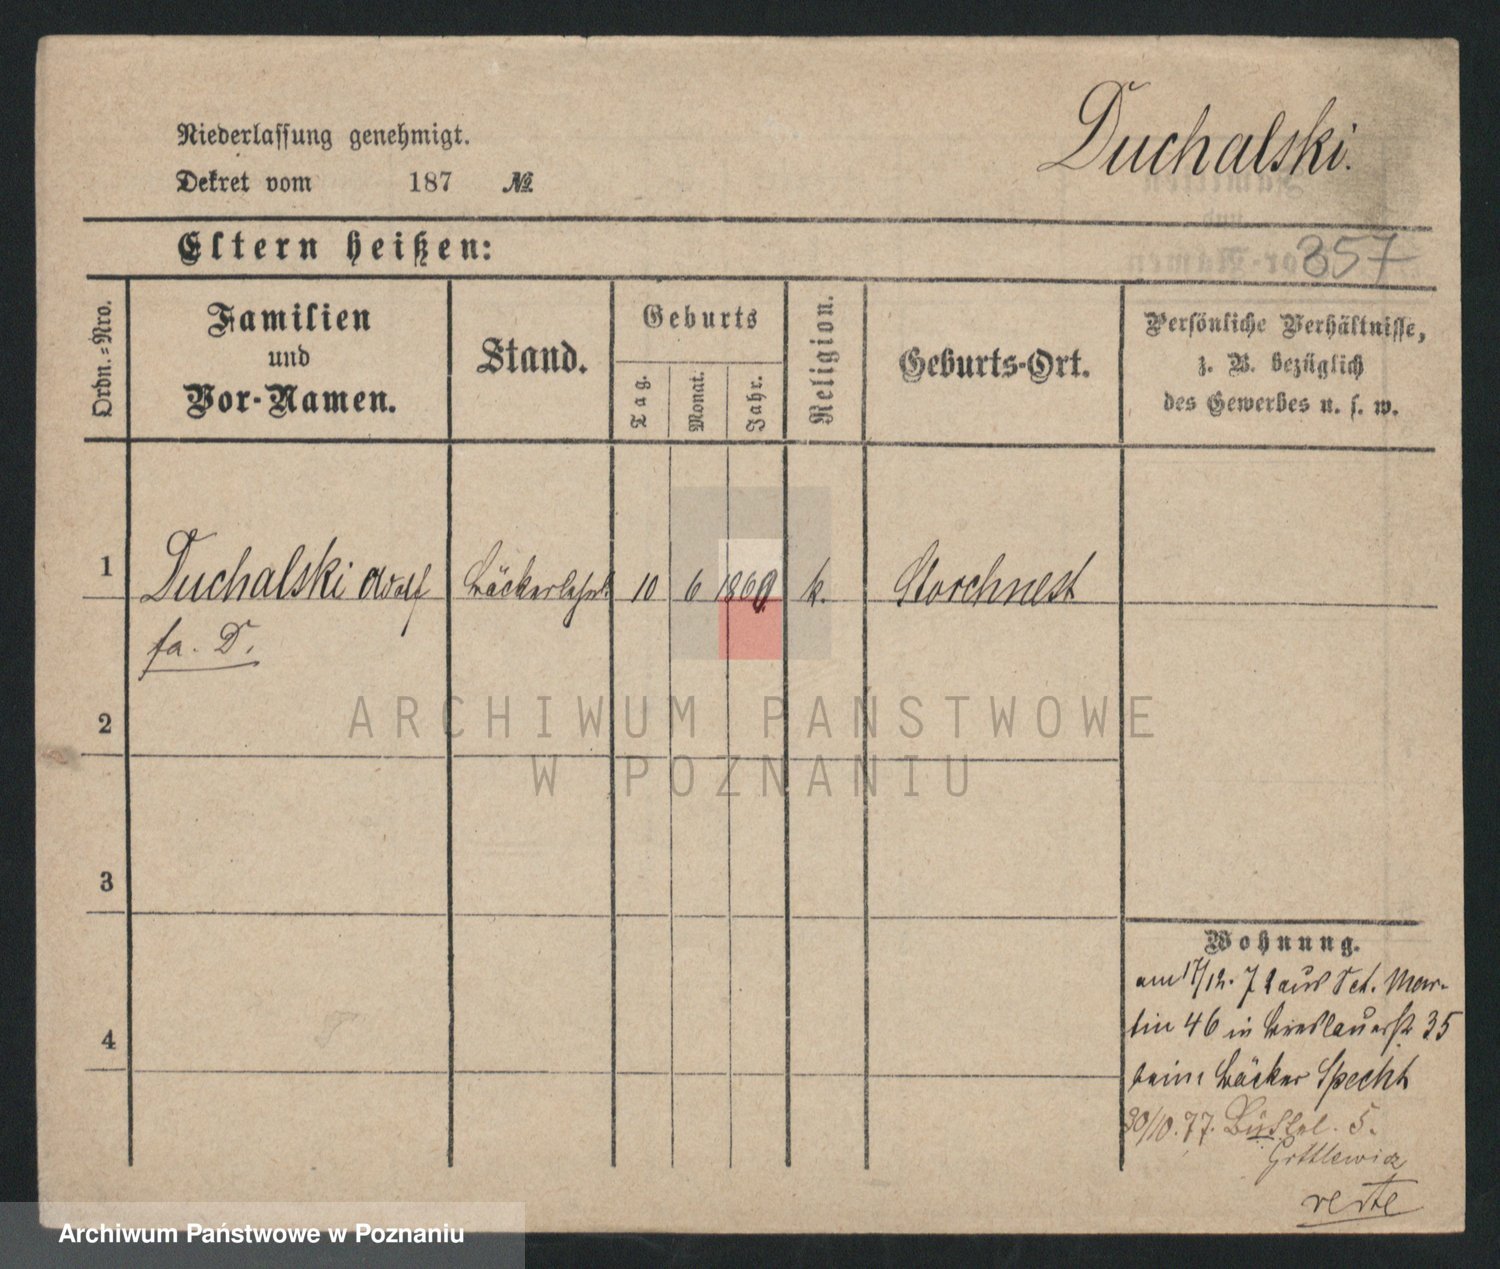 Duchalski.
Niederlassung genehmigt.
Dekret vom 187 №
Eltern heißen:
357
Ordn.-Nro.
Familien
und
Vor-Namen.
Stand.
Geburts
Tag.
Monat.
Jahr.
Religion.
Geburts-Ort.
Persönliche Verhältnisse,
z. B. bezüglich
des Gewerbes u. s. w.
1 Duchalski Adolf Bäckerlehrl. 10 6 1860 k. Storchnest
fa. D.
2
3
4
ARCHIWUM PAŃSTWOWE
W POZNANIU
Wohnung.
am 17/12. 7 aus Sct. Mar-
tin 46 in Breslauerstr 35
beim Bäcker Specht
30/10. 77. 5.
Gottlewicz
verte
Archiwum Państwowe w Poznaniu